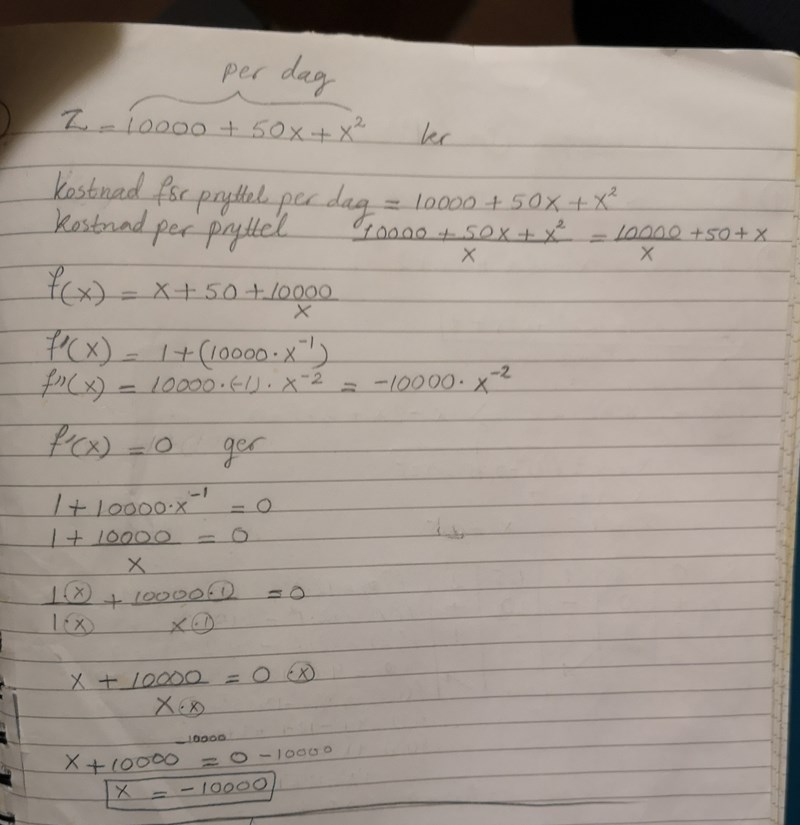 per dag
Z = 10000 + 50x + x² kr
kostnad för pryttel per dag = 10000 + 50x + x²
kostnad per pryttel (10000 + 50x + x²)/x = 10000/x + 50 + x
f(x) = x + 50 + 10000/x
f'(x) = 1 + (10000·x⁻¹)
f''(x) = 10000·(-1)·x⁻² = -10000·x⁻²
f'(x) = 0 ger
1 + 10000·x⁻¹ = 0
1 + 10000/x = 0
1(·x)/1(·x) + 10000(·1)/x(·1) = 0
(x + 10000)/x(·x) = 0 (·x)
x + 10000 -10000 = 0 - 10000
x = -10000